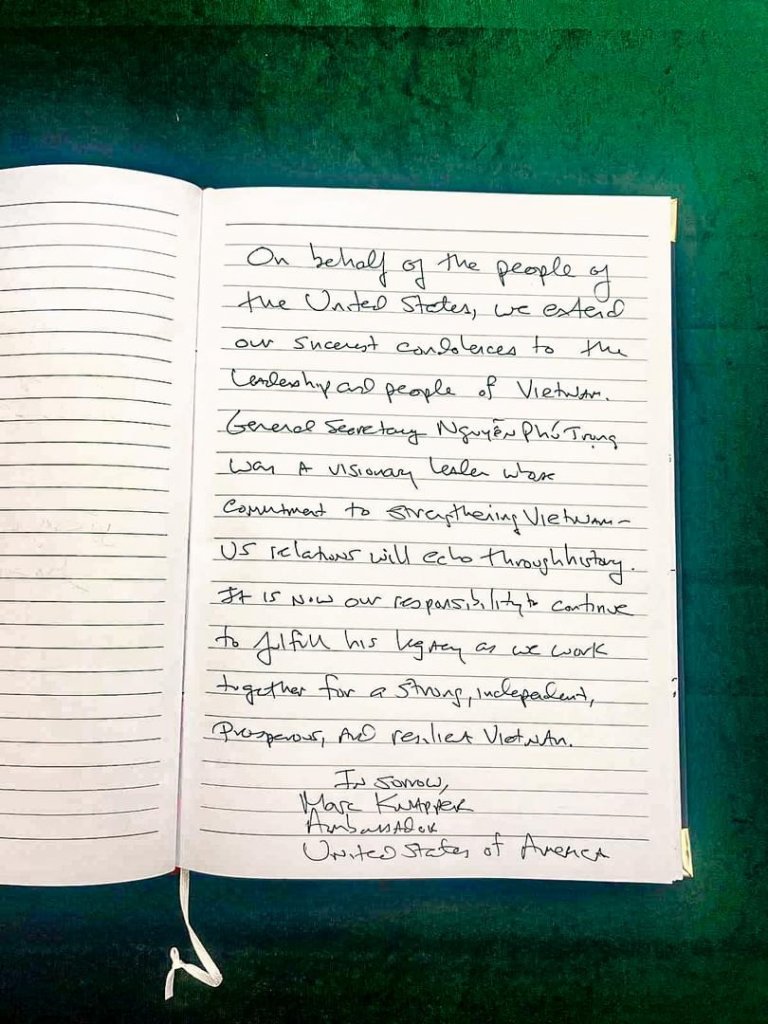 On behalf of the people of
the United States, we extend
our sincerest condolences to the
leadership and people of Vietnam.
General Secretary Nguyễn Phú Trọng
was a visionary leader whose
commitment to strengthening Vietnam-
US relations will echo through history.
It is now our responsibility to continue
to fulfill his legacy as we work
together for a strong, independent,
prosperous, and resilient Vietnam.
In sorrow,
Marc Knapper
Ambassador
United States of America